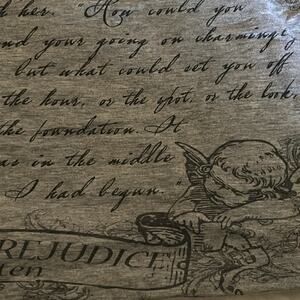 h her. "How could you
nd your going on charmingly
but what could set you off
the hour, or the spot, or the look,
the foundation. It
as in the middle
I had begun."
REJUDICE
ten